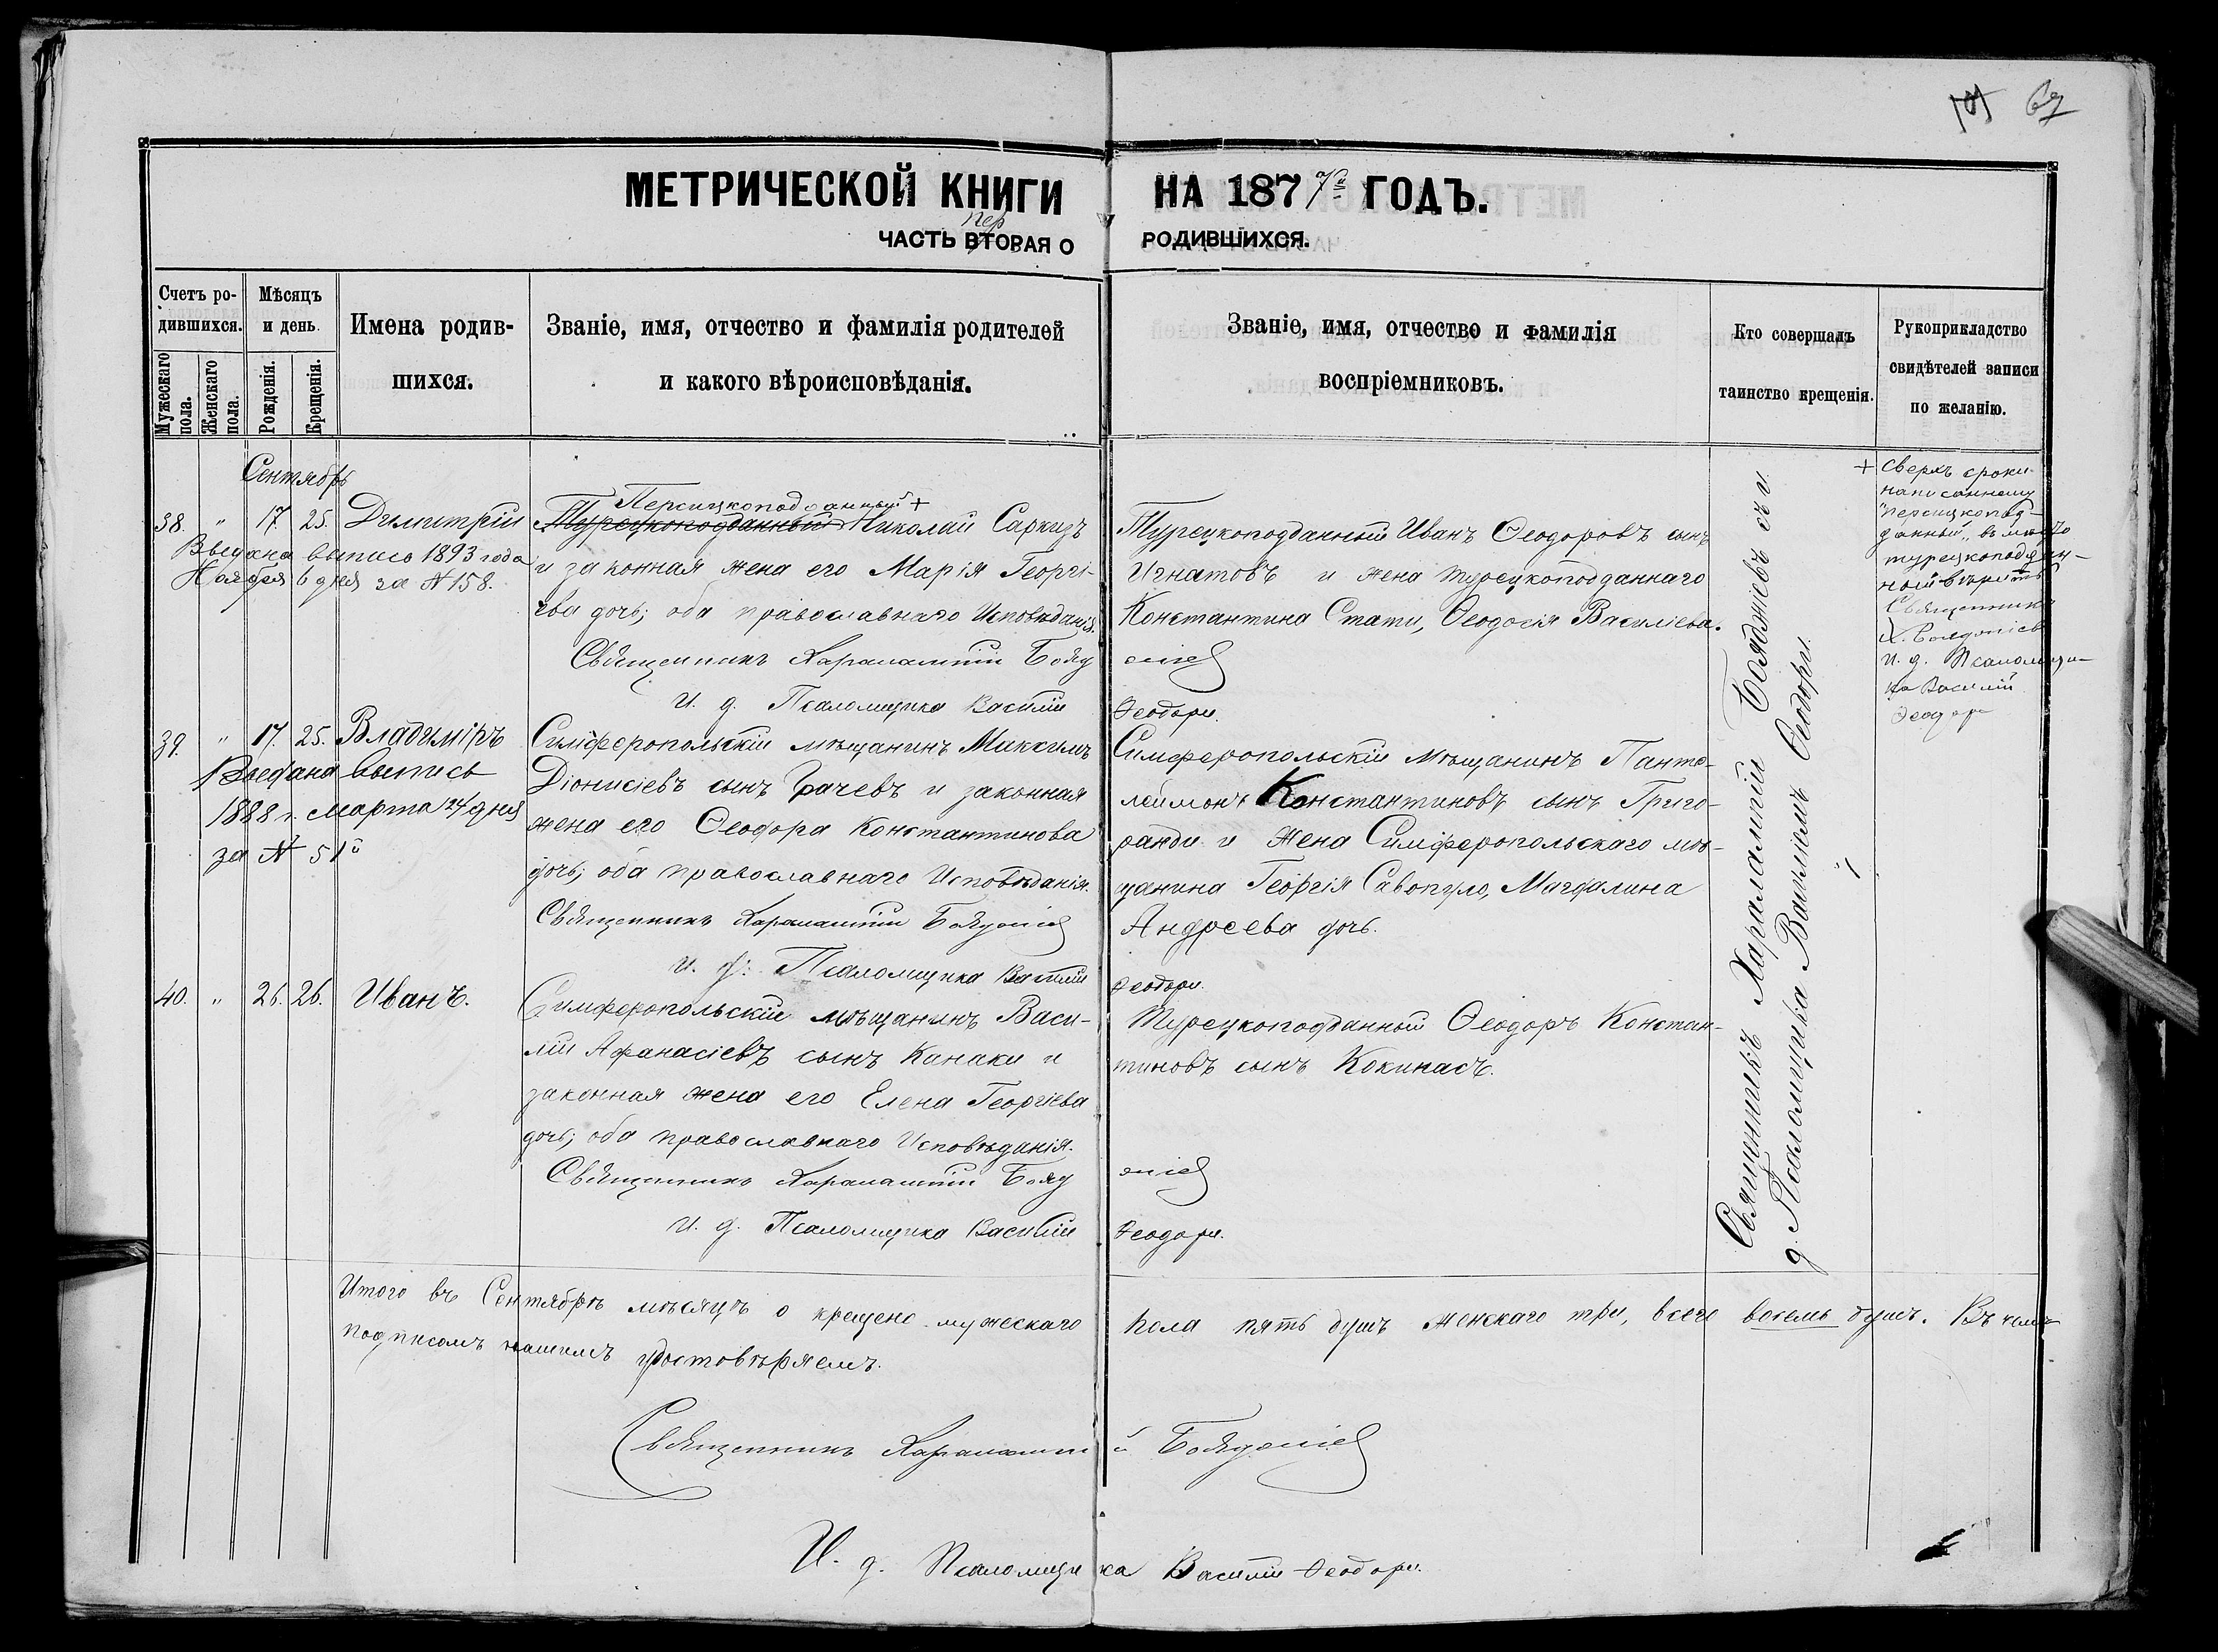 67
МЕТРИЧЕСКОЙ КНИГИ НА 1877й ГОДЪ.
пер
ЧАСТЬ ВТОРАЯ О РОДИВШИХСЯ.
Счетъ ро-
дившихся.
Мужескаго пола.
Женскаго пола.
Мѣсяцъ
и день.
Рожденія.
Крещенія.
Имена родив-
шихся.
Званіе, имя, отчество и фамилія родителей
и какого вѣроисповѣданія.
Званіе, имя, отчество и фамилія
воспріемниковъ.
Кто совершалъ
таинство крещенія.
Рукоприкладство
свидѣтелей записи
по желанію.
Сентябрь
38. " 17. 25. Димитрій
Выдана выпись 1893 года
Ноября 6 дня за № 158.
Персидскоподданный +
Турецкоподданный Николай Саркизъ
и законная жена его Марія Георгі-
ева дочь; оба православнаго Исповѣданія.
Священникъ Харалампій Бояджіевъ
И. д. Псаломщика Василій Ѳеодори.
Турецкоподданный Иванъ Ѳеодоровъ сынъ
Игнатовъ и жена турецкоподданнаго
Константина Стати, Ѳеодосія Василіева.
+ Сверхъ строки
написанному
"персидскопод-
данный" вмѣсто
турецкоподдан-
ный вѣрить
Священникъ
Х. Бояджіевъ
И. д. Псаломщи-
ка Василій
Ѳеодори
39. " 17. 25. Владиміръ
Выдана выпись
1888 г. марта 24 дня
за № 51й
Симферопольскій мѣщанинъ Максимъ
Діонисіевъ сынъ Грачевъ и законная
жена его Ѳеодора Константинова
дочь; оба православнаго Исповѣданія.
Священникъ Харалампій Бояджіевъ
И. д. Псаломщика Василій Ѳеодори.
Симферопольскій мѣщанинъ Панте-
леймонъ Константиновъ сынъ Григо-
ранди и жена Симферопольскаго мѣ-
щанина Георгія Савопуло, Магдалина
Андреева дочь.
40. " 26. 26. Иванъ.
Симферопольскій мѣщанинъ Васи-
лій Афанасіевъ сынъ Канаки и
законная жена его Елена Георгіева
дочь; оба православнаго Исповѣданія.
Священникъ Харалампій Бояджіевъ
И. д. Псаломщика Василій Ѳеодори.
Турецкоподданный Ѳеодоръ Констан-
тиновъ сынъ Кокинасъ.
Священникъ Харалампій Бояджіевъ съ и.
д. Псаломщика Василіемъ Ѳеодори.
Итого въ Сентябрѣ мѣсяцѣ о крещено мужескаго пола пять душъ женскаго три, всего восемь душъ. Въ чемъ
подписомъ нашимъ удостовѣряемъ.
Священникъ Харалампій Бояджіевъ
И. д. Псаломщика Василій Ѳеодори.